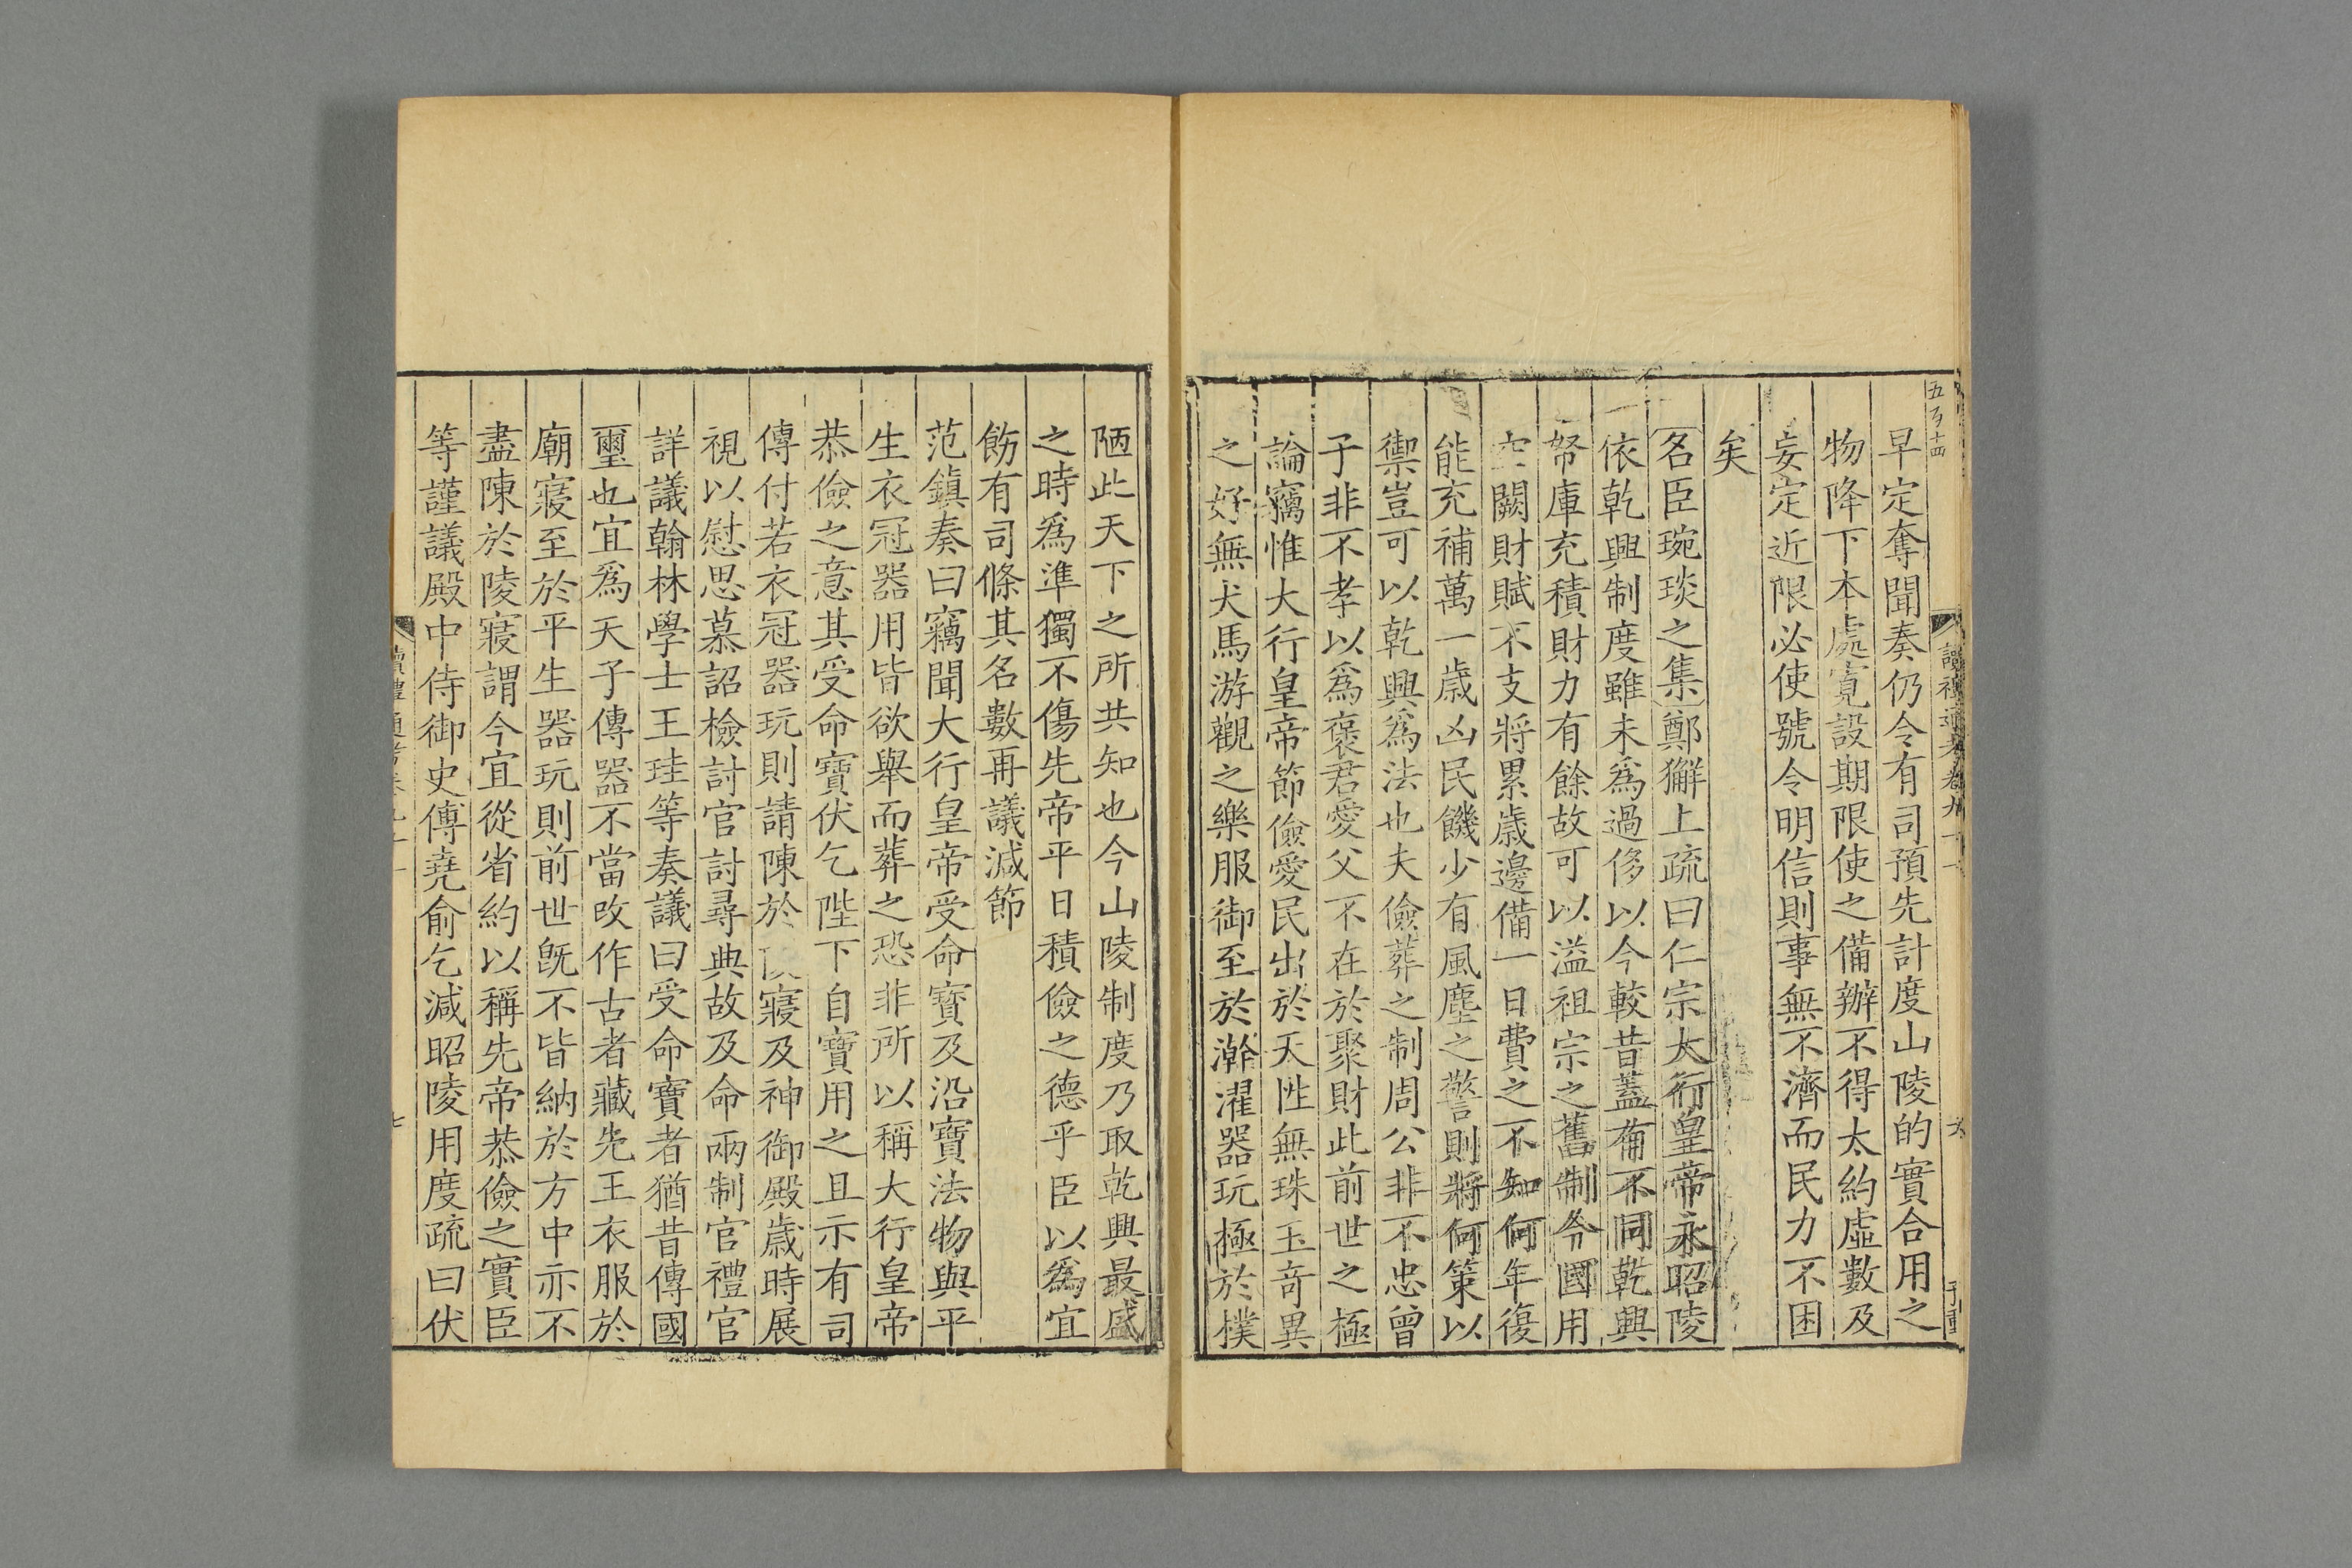 早定奪聞奏仍令有司預先計度山陵的實合用之
物降下本處寬設期限使之備辦不得太約虛數及
妄定近限必使號令明信則事無不濟而民力不困
矣
名臣琬琰之集鄭獬上疏曰仁宗大行皇帝永昭陵
依乾興制度雖未爲過侈以今較昔蓋有不同乾興
帑庫充積財力有餘故可以溢祖宗之舊制今國用
空闕財賦不支將累歲邊備一日費之不知何年復
能充補萬一歲凶民饑少有風塵之警則將何策以
禦豈可以乾興爲法也夫儉葬之制周公非不忠曾
子非不孝以爲褒君愛父不在於聚財此前世之極
論竊惟大行皇帝節儉愛民出於天性無珠玉奇異
之好無犬馬游觀之樂服御至於澣濯器玩極於樸
陋此天下之所共知也今山陵制度乃取乾興最盛
之時爲準獨不傷先帝平日積儉之德乎臣以爲宜
飭有司條其名數再議減節
范鎮奏曰竊聞大行皇帝受命寳及沿寶法物與平
生衣冠器用皆欲舉而葬之恐非所以稱大行皇帝
恭儉之意其受命寶伏乞陛下自寶用之且示有司
傳付若衣冠器玩則請陳於寢及神御殿歲時展
視以慰思慕詔檢討官討尋典故及命兩制官禮官
詳議翰林學士王珪等奏議曰受命寶者猶昔傳國
璽也宜爲天子傳器不當改作古者藏先王衣服於
廟寢至於平生器玩則前世旣不皆納於方中亦不
盡陳於陵寢謂今宜從省約以稱先帝恭儉之實臣
等謹議殿中侍御史傅堯俞乞減昭陵用度疏曰伏
讀禮通考卷九十一
七